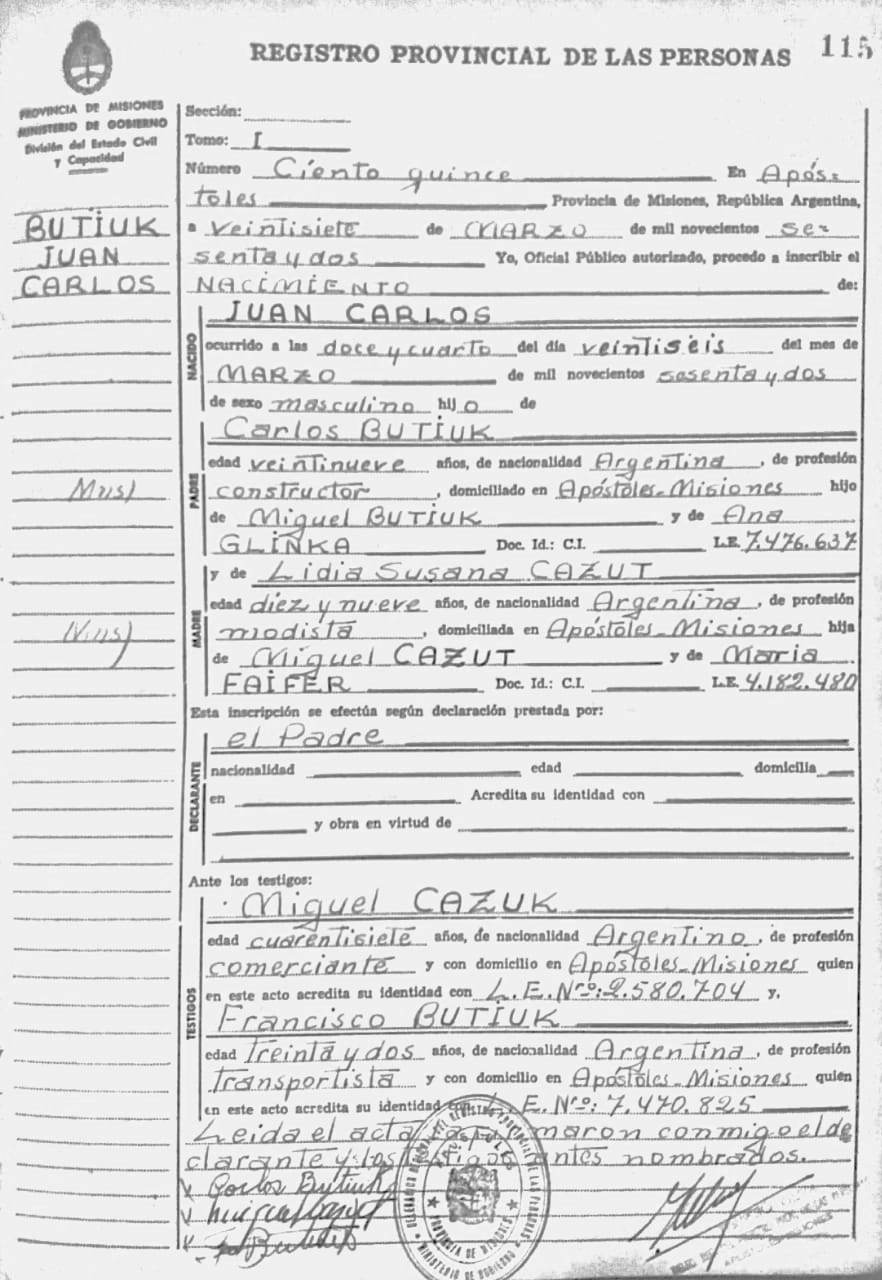 REGISTRO PROVINCIAL DE LAS PERSONAS 115
PROVINCIA DE MISIONES
MINISTERIO DE GOBIERNO
División del Estado Civil
y Capacidad
BUTIUK
JUAN
CARLOS
Sección:
Tomo: I
Número Ciento quince En Após-
toles Provincia de Misiones, República Argentina,
a veintisiete de MARZO de mil novecientos se-
senta y dos Yo, Oficial Público autorizado, procedo a inscribir el
NACIMIENTO de:
NACIDO
JUAN CARLOS
ocurrido a las doce y cuarto del día veintiseis del mes de
MARZO de mil novecientos sesenta y dos
de sexo masculino hijo de
PADRE
Carlos BUTIUK
edad veintinueve años, de nacionalidad Argentina, de profesión
constructor, domiciliado en Apóstoles-Misiones hijo
de Miguel BUTIUK y de Ana
GLINKA Doc. Id.: C.I. L.E. 7.476.637
MADRE
y de Lidia Susana CAZUT
edad diez y nueve años, de nacionalidad Argentina, de profesión
modista, domiciliada en Apóstoles-Misiones hija
de Miguel CAZUT y de Maria
FAIFER Doc. Id.: C.I. L.E. 4.182.480
Esta inscripción se efectúa según declaración prestada por:
DECLARANTE
el Padre
nacionalidad edad domicilia
en Acredita su identidad con
y obra en virtud de
Ante los testigos:
TESTIGOS
Miguel CAZUK
edad cuarentisiete años, de nacionalidad Argentino, de profesión
comerciante y con domicilio en Apóstoles-Misiones quien
en este acto acredita su identidad con L.E.Nro:2.580.704 y,
Francisco BUTIUK
edad treinta y dos años, de nacionalidad Argentina, de profesión
transportista y con domicilio en Apóstoles-Misiones quien
en este acto acredita su identidad con L.E.Nro: 7.470.825
Leida el acta maron conmigo el de
clarante y los antes nombrados.
Carlos Butiuk
PROVINCIA DE MISIONES
MINISTERIO DE GOBIERNO